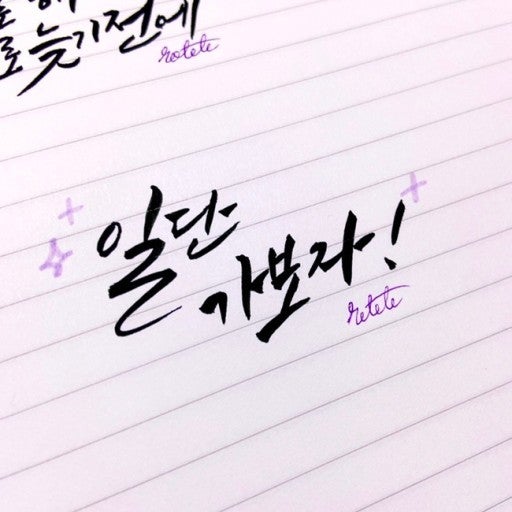 로 늦기전에
rotete
일단
가보자!
retete